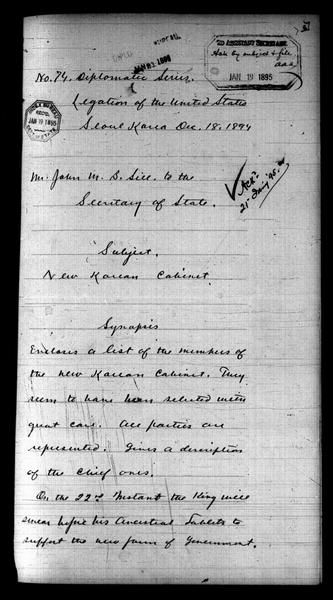 TO ASSISTANT SECRETARY,
Ack by subject & file
JAN 19 1895
No. 74. Diplomatic Series.
Legation of the United States
Seoul Korea Dec. 18. 1894
RECD.
JAN 19 1895
Mr. John M. B. Sill. to the
Secretary of State.
Ackd
21 Jany '95.
Subject.
New Korean Cabinet.
Synopsis
Encloses a list of the members of
the new Korean Cabinet. They
seem to have been selected with
great care. All parties are
represented. Gives a description
of the chief ones.
On the 22nd Instant the King will
swear before his Ancestral Tablets to
support the new form of Government.